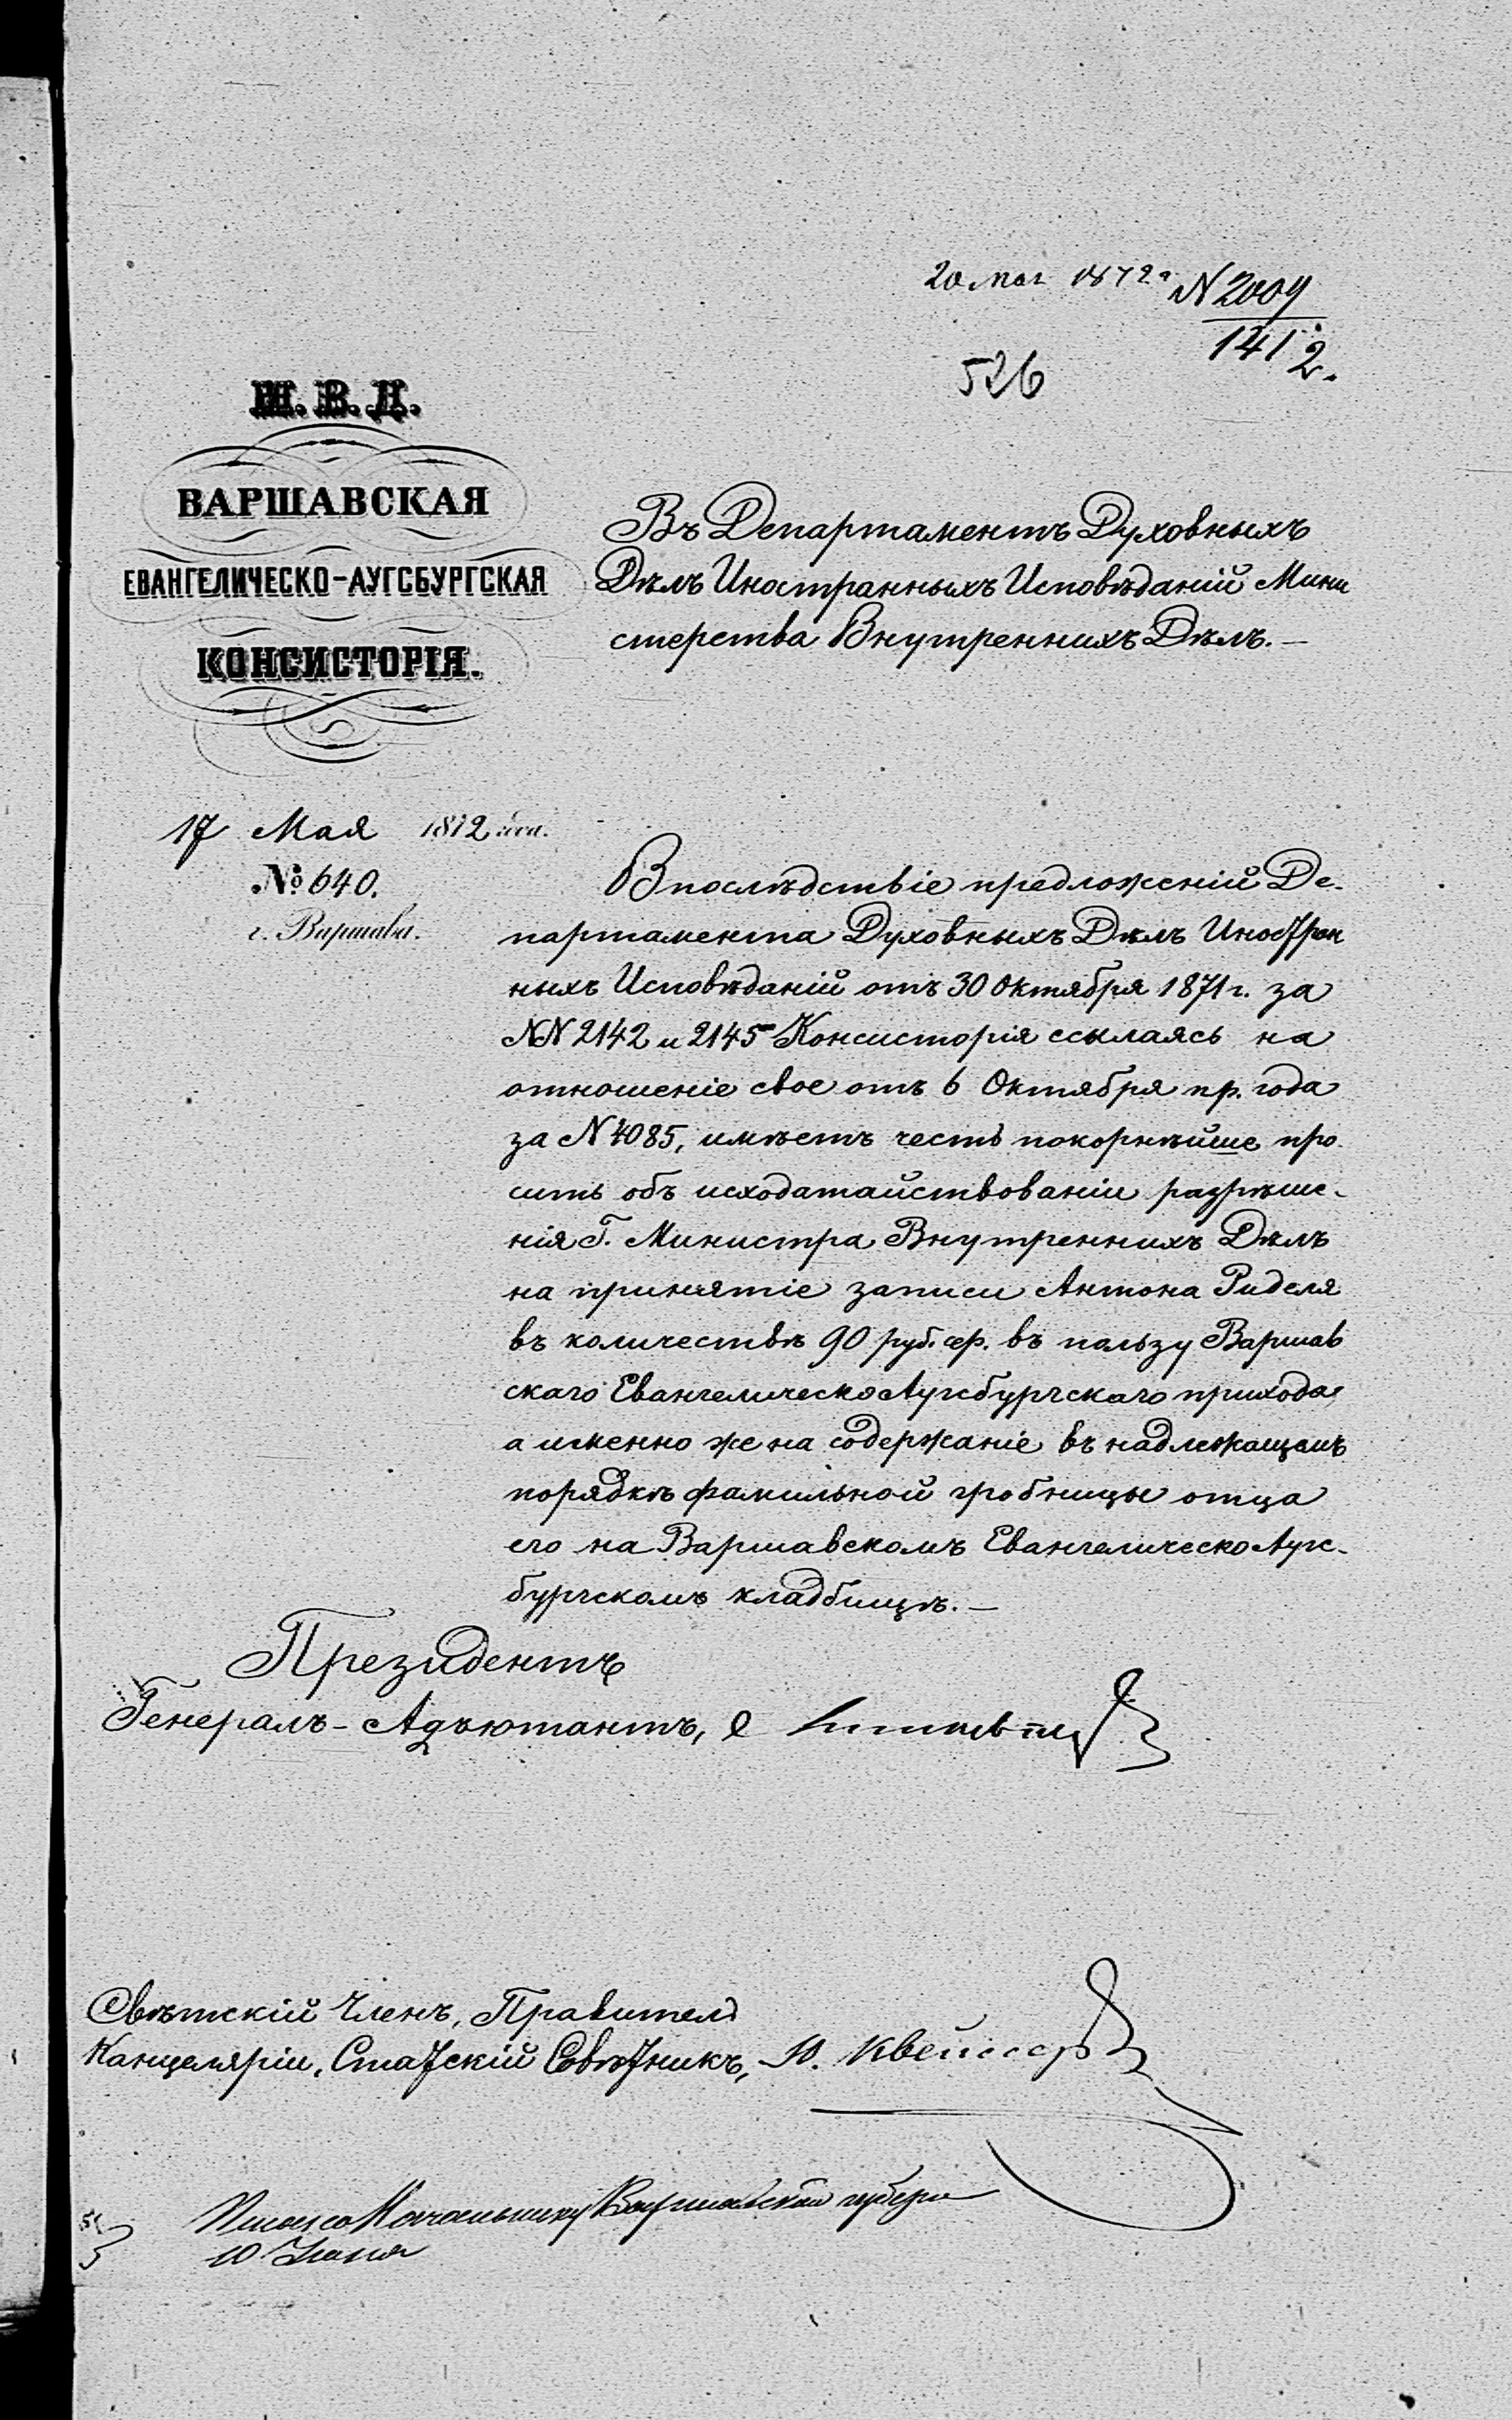 20 мая 1872 г. N 2009
1412.
526
М. В. Д.
ВАРШАВСКАЯ
ЕВАНГЕЛИЧЕСКО-АУГСБУРГСКАЯ
КОНСИСТОРІЯ.
Въ Департаментъ Духовныхъ
Дѣлъ Иностранныхъ Исповѣданій Мини
стерства Внутреннихъ Дѣлъ. —
17 Мая 1872 года.
№ 640.
г. Варшава.
Впослѣдствіе предложеній Де-
партамента Духовныхъ Дѣлъ Иностран
ныхъ Исповѣданій отъ 30 Октября 1871 г. за
NN 2142 и 2145 Консисторія ссылаясь на
отношеніе свое отъ 6 Октября пр. года
за N 4085, имѣетъ честь покорнѣйше про
сить объ исходатайствованіи разрѣше-
нія Г. Министра Внутреннихъ Дѣлъ
на принятіе записи Антона Риделя
въ количествѣ 90 руб. сер. въ пользу Варшав
скаго Евангелическо Аугсбургскаго прихода,
а именно же на содержаніе въ надлежащемъ
порядкѣ фамильной гробницы отца
его на Варшавскомъ Евангелическо Аугс-
бургскомъ кладбищѣ. —
Президентъ
Генералъ-Адъютантъ,
Свѣтскій Членъ, Правитель
Канцеляріи, Статскій Совѣтникъ, Ю.
Начальнику Варшавской губерн
10 Іюня